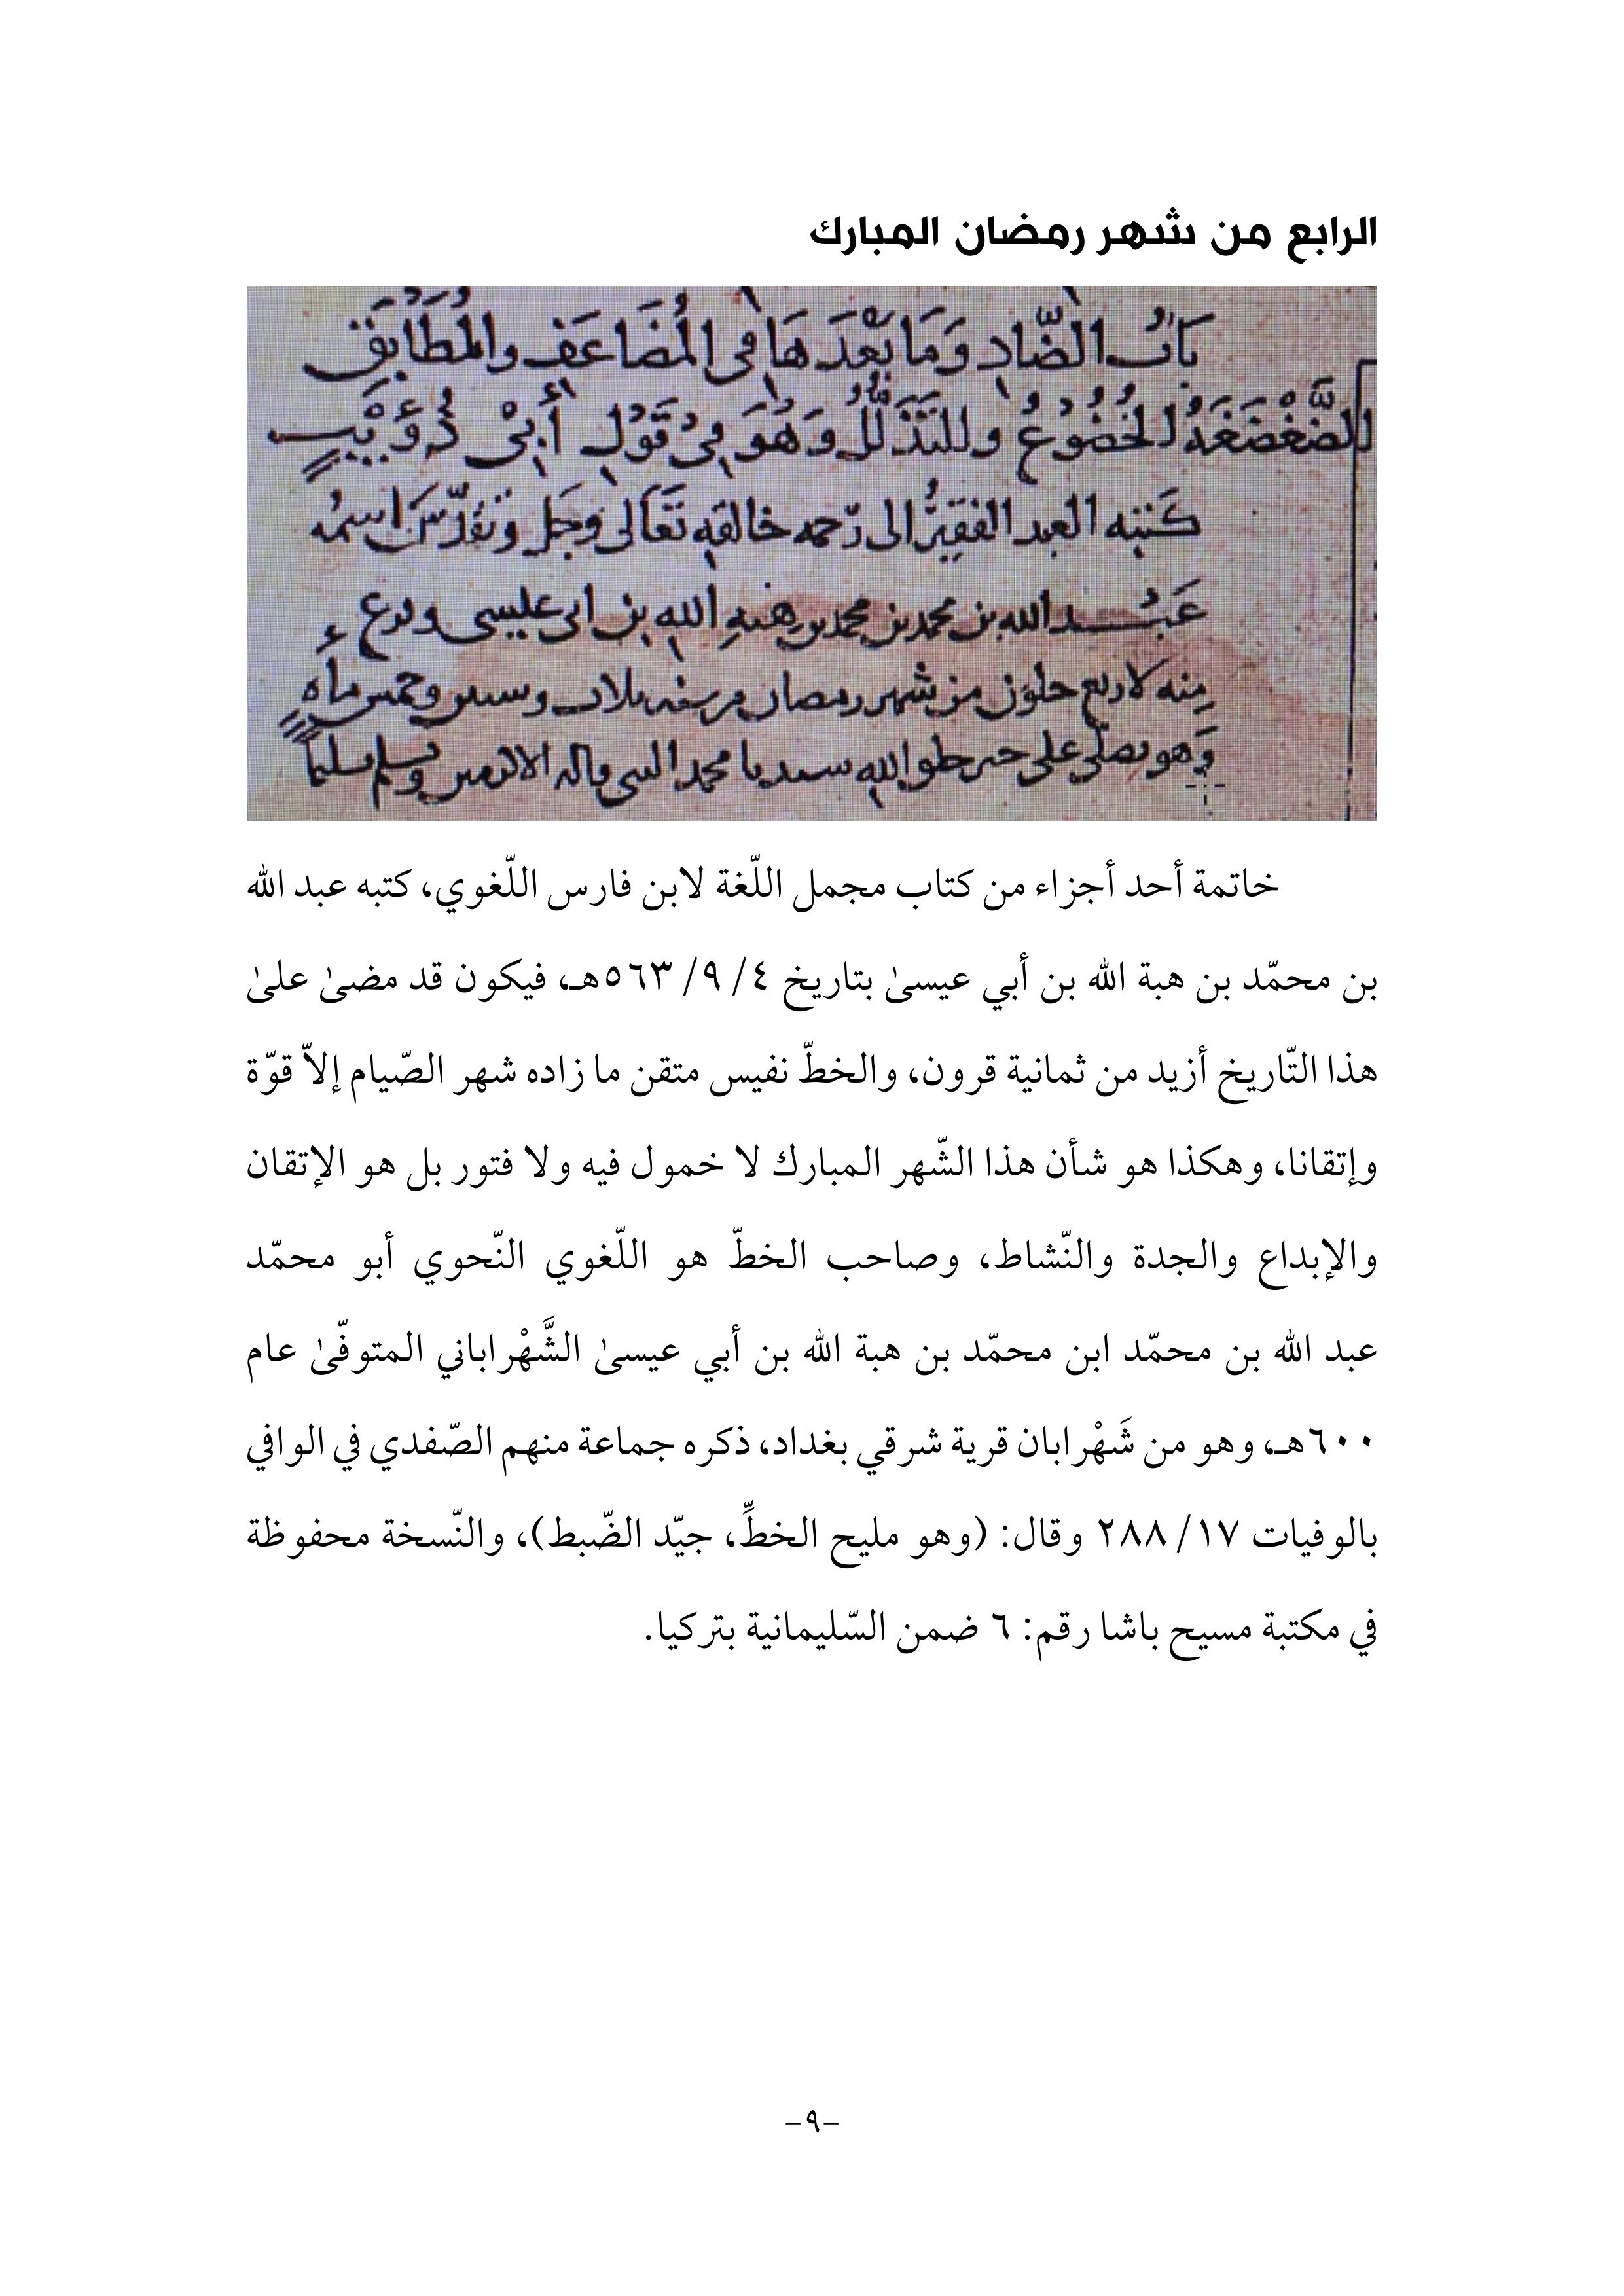 الرابع من شهر رمضان المبارك
بَابُ الضَّادِ وَمَا بَعْدَهَا فِي الْمُضَاعَفِ والمُطَابَقِ
الضَّغْضَغَةُ الخُضُوعُ والتَذَلُّلُ وَهُوَ فِي قَوْلِ أَبِيْ ذُؤَيْبٍ
كَتَبه العبد الفقيرُ الى رَحمه خالقهِ تَعَالى وجَل وتقدّسَ اسمُه
عَبْد الله بن محمد بن محمد بن هبهِ اللهِ بن ابى عيسى وفرع
مِنه لاربع خلوَن من شهر رمضان من سنه ثلاث وستين وخمس مايهٍ
وَهو يصلّى على خير خلق اللهِ سيدنا محمد النبى واله الاكرمين ويسلم تسليماً
خاتمة أحد أجزاء من كتاب مجمل اللّغة لابن فارس اللّغوي، كتبه عبد الله
بن محمّد بن هبة الله بن أبي عيسىٰ بتاريخ ٤/ ٩/ ٥٦٣هـ، فيكون قد مضىٰ علىٰ
هذا التّاريخ أزيد من ثمانية قرون، والخطّ نفيس متقن ما زاده شهر الصّيام إلاّ قوّة
وإتقانا، وهكذا هو شأن هذا الشّهر المبارك لا خمول فيه ولا فتور بل هو الإتقان
والإبداع والجدة والنّشاط، وصاحب الخطّ هو اللّغوي النّحوي أبو محمّد
عبد الله بن محمّد ابن محمّد بن هبة الله بن أبي عيسىٰ الشَّهْراباني المتوفّىٰ عام
٦٠٠هـ، وهو من شَهْرابان قرية شرقي بغداد، ذكره جماعة منهم الصّفدي في الوافي
بالوفيات ١٧/ ٢٨٨ وقال: (وهو مليح الخطِّ، جيّد الضّبط)، والنّسخة محفوظة
في مكتبة مسيح باشا رقم: ٦ ضمن السّليمانية بتركيا.
-٩-